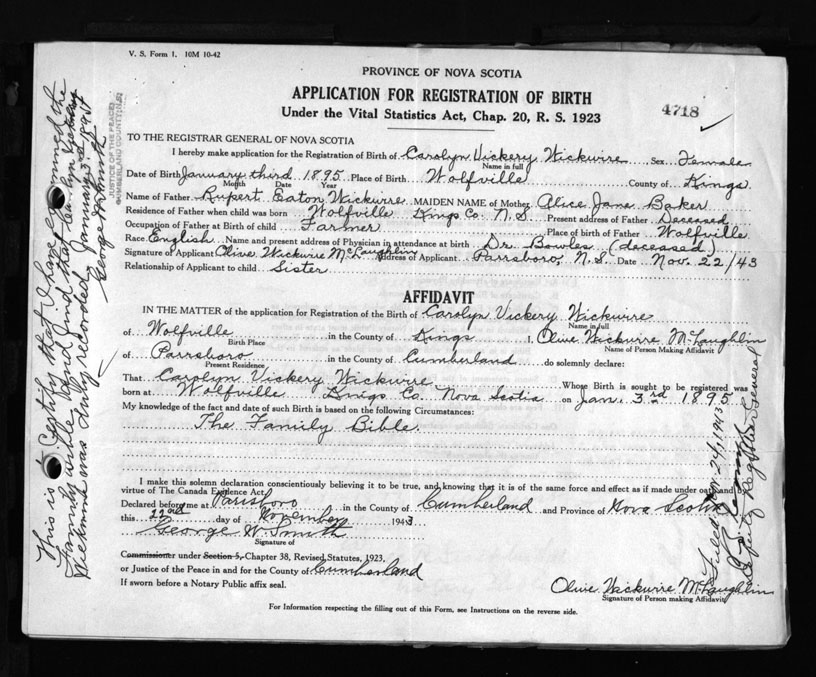 V. S. Form 1. 10M 10-42
PROVINCE OF NOVA SCOTIA
APPLICATION FOR REGISTRATION OF BIRTH
Under the Vital Statistics Act, Chap. 20, R. S. 1923
4718
TO THE REGISTRAR GENERAL OF NOVA SCOTIA
I hereby make application for the Registration of Birth of Carolyn Vickery Wickwire Sex Female
Name in full
Date of Birth January third 1895 Place of Birth Wolfville County of Kings
Month Date Year
Name of Father Rupert Eaton Wickwire MAIDEN NAME of Mother Alice Jane Baker
Residence of Father when child was born Wolfville Kings Co. N.S. Present address of Father Deceased
Occupation of Father at Birth of child Farmer Place of birth of Father Wolfville
Race English Name and present address of Physician in attendance at birth Dr. Bowles (deceased)
Signature of Applicant Olive Wickwire McLaughlin Address of Applicant Parrsboro, N.S. Date Nov. 22/43
Relationship of Applicant to child Sister
AFFIDAVIT
IN THE MATTER of the application for Registration of the Birth of Carolyn Vickery Wickwire
Name in full
of Wolfville in the County of Kings I, Olive Wickwire McLaughlin
Birth Place Name of Person Making Affidavit
of Parrsboro in the County of Cumberland do solemnly declare:
Present Residence
That Carolyn Vickery Wickwire Whose Birth is sought to be registered was
born at Wolfville Kings Co. Nova Scotia on Jan. 3rd 1895
My knowledge of the fact and date of such Birth is based on the following Circumstances:
The Family Bible
I make this solemn declaration conscientiously believing it to be true, and knowing that it is of the same force and effect as if made under oath and by
virtue of The Canada Evidence Act.
Declared before me at Parrsboro in the County of Cumberland and Province of Nova Scotia
this 22nd day of November 1943
George W. Smith
Signature of
Commissioner under Section 5, Chapter 38, Revised Statutes, 1923,
or Justice of the Peace in and for the County of Cumberland
If sworn before a Notary Public affix seal.
Olive Wickwire McLaughlin
Signature of Person making Affidavit
For Information respecting the filling out of this Form, see Instructions on the reverse side.
This is to Certify that I have examined the
Family Bible and find that Carolyn Vickery
Wickwire was duly recorded January 3rd 1895
George W. Smith
JUSTICE OF THE PEACE
CUMBERLAND COUNTY, N.S.
Filed Nov. 24, 1943
Deputy Registrar General